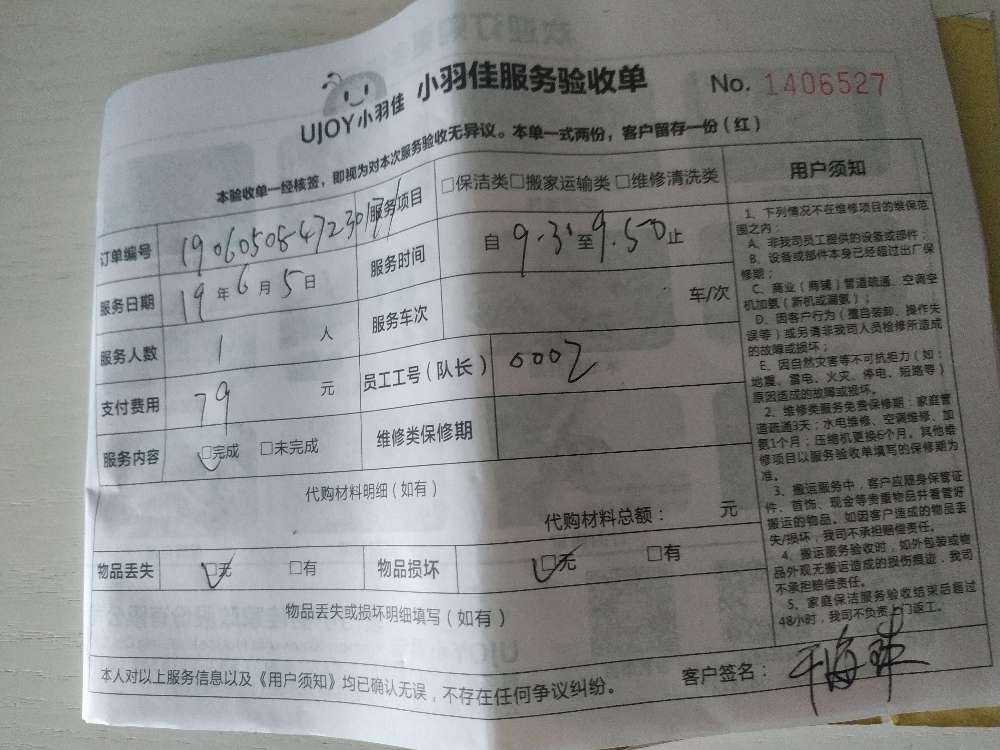 UJOY小羽佳 小羽佳服务验收单 No. 1406527
本验收单一经核签，即视为对本次服务验收无异议。本单一式两份，客户留存一份（红）
订单编号 服务项目 □保洁类□搬家运输类□维修清洗类
服务日期 19年6月5日 服务时间 自9.31至9.50止
服务人数 1 人 服务车次 车/次
支付费用 79 元 员工工号（队长） 0002
服务内容 □完成 □未完成 维修类保修期
代购材料明细（如有）
代购材料总额： 元
物品丢失 □无 □有 物品损坏 □无 □有
物品丢失或损坏明细填写（如有）
本人对以上服务信息以及《用户须知》均已确认无误，不存在任何争议纠纷。
客户签名：
用户须知
1、下列情况不在维修项目的维保范
围之内：
A、非我司员工提供的设备或部件；
B、设备或部件本身已经超过出厂保
修期；
C、商业（商铺）管道疏通、空调空
机加氨（新机或漏氨）；
D、因客户行为（擅自装卸、操作失
误等）或另请非我司人员检修所造成
的故障或损坏；
E、因自然灾害等不可抗拒力（如：
地震、雷电、火灾、停电、短路等）
原因造成的故障或损坏。
2、维修类服务免费保修期：家庭管
道疏通3天；水电维修、空调维修、加
氨1个月；压缩机更换6个月。其他维
修项目以服务验收单填写的保修期为
准。
3、搬运服务中，客户应随身保管证
件、首饰、现金等贵重物品并看管好
搬运的物品。如因客户造成的物品丢
失/损坏，我司不承担赔偿责任。
4、搬运服务验收时，如外包装或物
品外观无搬运造成的损伤痕迹，我司
不承担赔偿责任。
5、家庭保洁服务验收结束后超过
48小时，我司不负责上门返工。